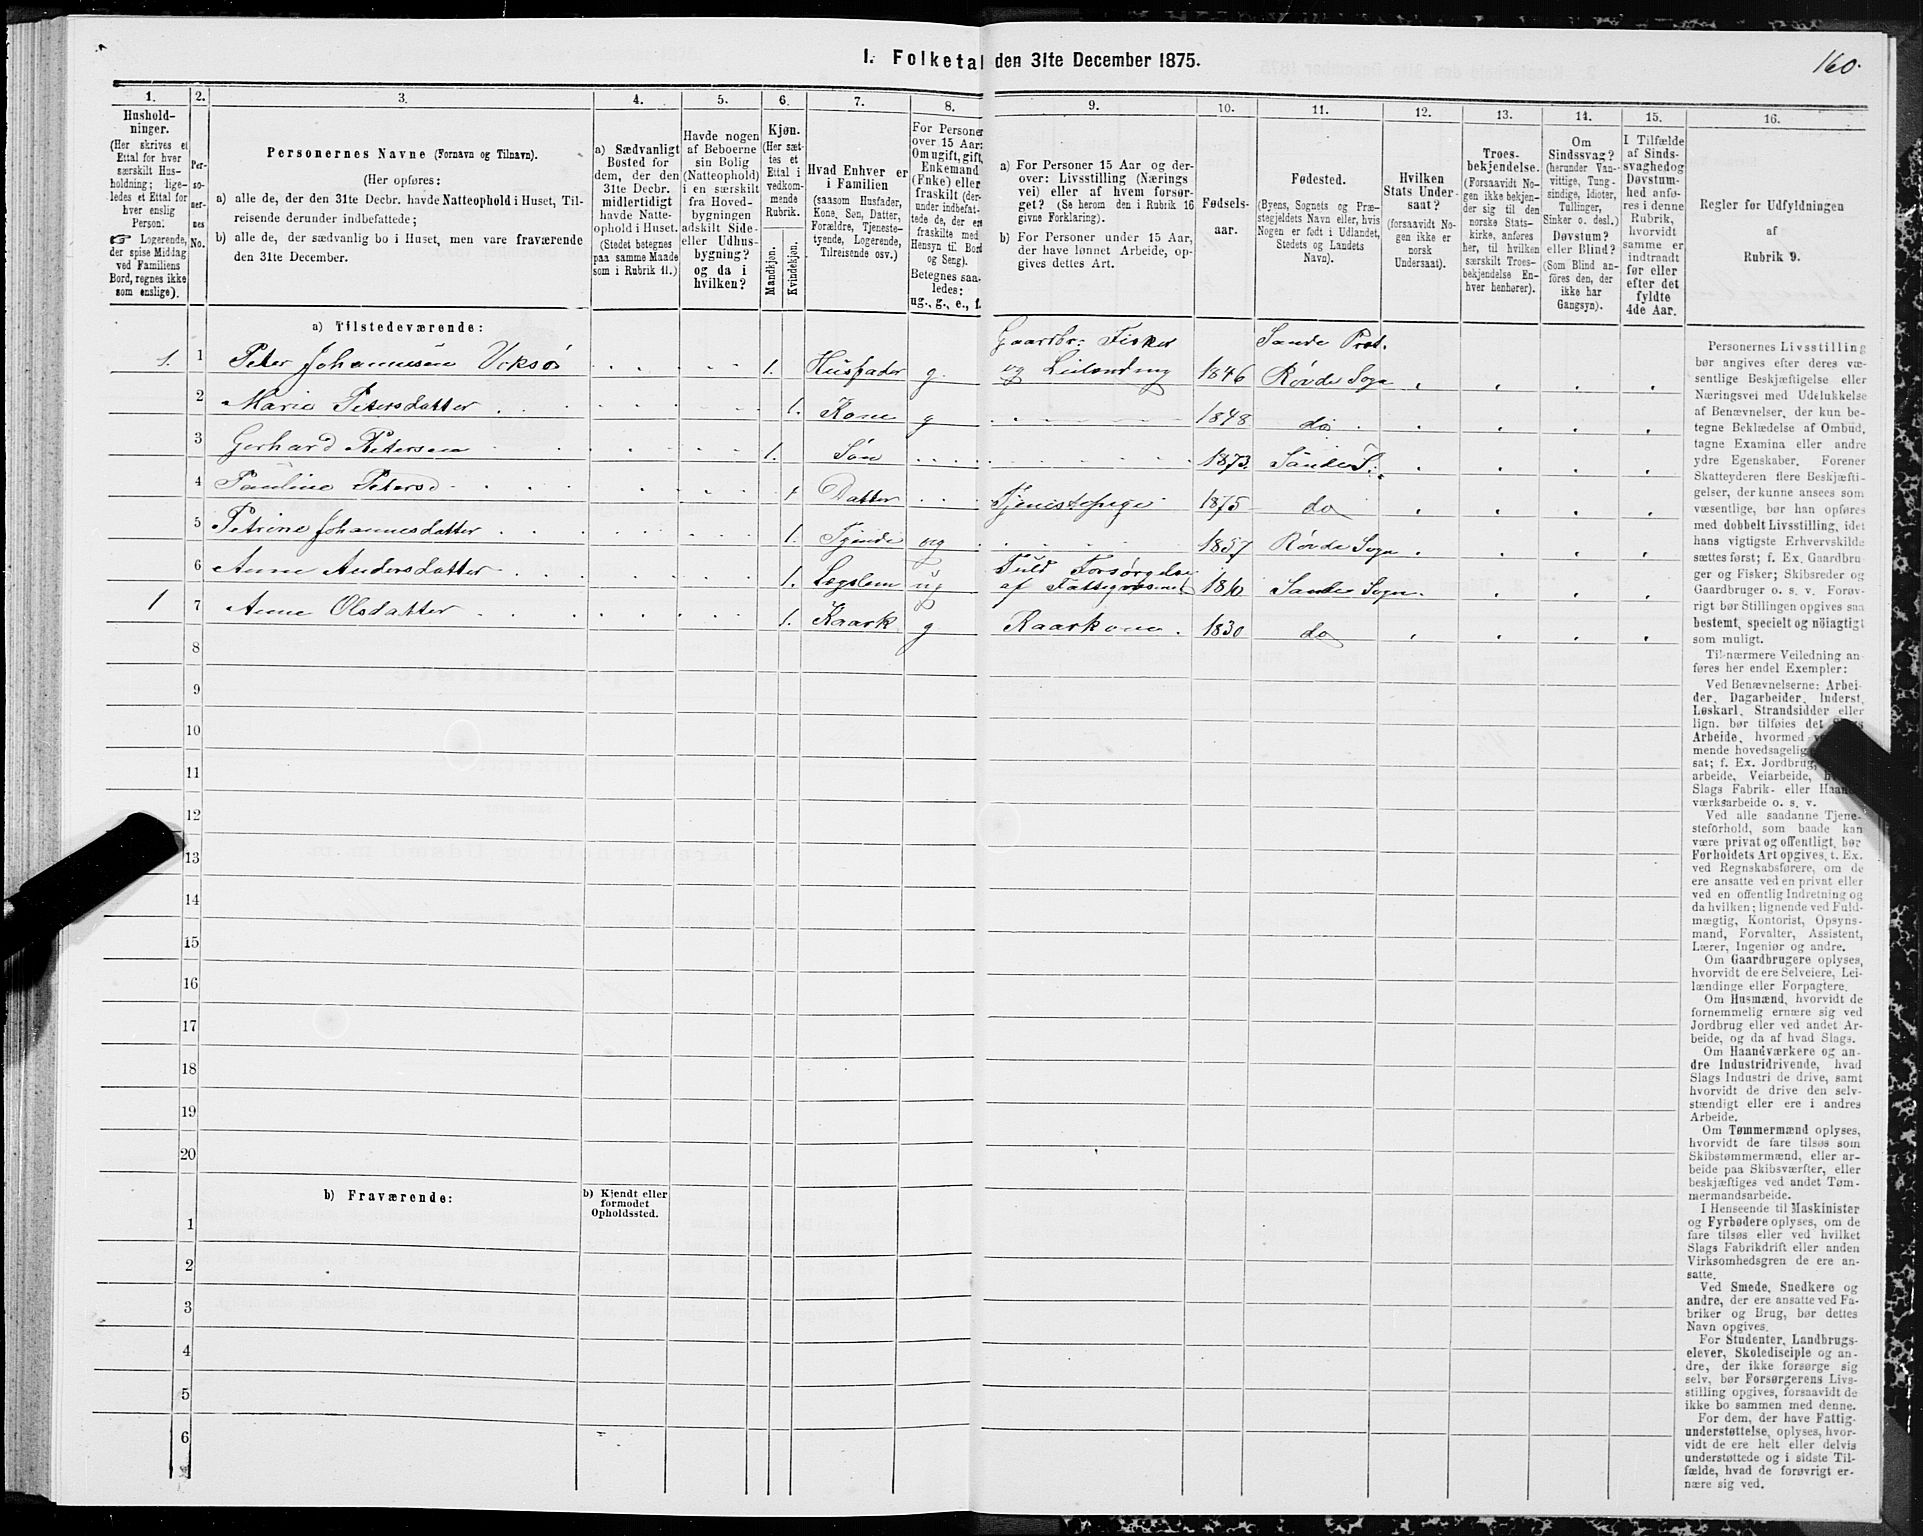 160.
I. Folketal den 31te December 1875.
1. 2. 3. 4. 5. 6. 7. 8. 9. 10. 11. 12. 13. 14. 15. 16.
Hushold-
ninger.
(Her skrives et
Ettal for hver
særskilt Hus-
holdning; lige-
ledes et Ettal for
hver enslig
Person.
☞ Logerende,
der spise Middag
ved Familiens
Bord, regnes ikke
som enslige).
Per-
so-
ner-
nes
No.
Personernes Navne (Fornavn og Tilnavn).
(Her opføres:
a) alle de, der den 31te Decbr. havde Natteophold i Huset, Til-
reisende derunder indbefattede;
b) alle de, der sædvanlig bo i Huset, men vare fraværende
den 31te December.
a) Sædvanligt
Bosted for
dem, der den
31te Decbr.
midlertidigt
havde Natte-
ophold i Huset.
(Stedet betegnes
paa samme Maade
som i Rubrik 11.)
Havde nogen
af Beboerne
sin Bolig
(Natteophold)
i en særskilt
fra Hoved-
bygningen
adskilt Side-
eller Udhus-
bygning?
og da i
hvilken?
Kjøn.
(Her sæt-
tes et
Ettal i
vedkom-
mende
Rubrik.
Mandkjøn.
Kvindekjøn.
Hvad Enhver er
i Familien
(saasom Husfader,
Kone, Søn, Datter,
Forældre, Tjeneste-
tyende, Logerende,
Tilreisende osv.)
For Personer
over 15 Aar:
Om ugift, gift,
Enkemand
(Enke) eller
fraskilt (der-
under indbefat-
tede de, der ere
fraskilte med
Hensyn til Bord
og Seng).
Betegnes saa-
ledes:
ug., g., e., f.
a) For Personer 15 Aar og der-
over: Livsstilling (Nærings-
vei) eller af hvem forsør-
get? (Se herom den i Rubrik 16
givne Forklaring).
b) For Personer under 15 Aar,
der have lønnet Arbeide, op-
gives dettes Art.
Fødsels-
aar.
Fødested.
(Byens, Sognets og Præ-
stegjeldets Navn eller, hvis
Nogen er født i Udlandet,
Stedets og Landets
Navn).
Hvilken
Stats Under-
saat?
(forsaavidt No-
gen ikke er
norsk
Undersaat).
Troes-
bekjendelse.
(Forsaavidt No-
gen ikke bekjen-
der sig til den
norske Stats-
kirke, anføres
her, til hvilken
særskilt Troes-
bekjendelse En-
hver henhører).
Om
Sindssvag?
(herunder Van-
vittige, Tung-
sindige, Idioter,
Tullinger,
Sinker o. desl.)
Døvstum?
eller Blind?
(Som Blind an-
føres den, der
ikke har
Gangsyn).
I Tilfælde
af Sinds-
svaghed og
Døvstum-
hed anfø-
res i denne
Rubrik,
hvorvidt
samme er
indtraadt
før eller
efter det
fyldte
4de Aar.
Regler for Udfyldningen
af
Rubrik 9.
a) Tilstedeværende:
Gaardbr: Fisker Sande Præst.
1. 1 Peter Johannesen Voksø 1. Husfader g. og Leilending 1846 Røvde Sogn
2 Marie Petersdatter 1. Kone g 1848 do
3 Gerhard Petersen 1. Søn 1873. Sande S.
4 Pauline Petersd 1 Datter 1875 do
Tjenestepige
5 Petrine Johannesdatter 1. Tjende ug 1857 Røvde Sogn
Fuld Forsørgelse
6 Anne Andersdatter 1. Lægslem ug af Sande Sogn.
1 7 Anne Olsdatter 1. Kaark g Kaarkone. 1830 do
8
9
10
11
12
13
14
15
16
17
18
19
20
b) Fraværende:
b) Kjendt eller
formodet
Opholdssted.
1
2
3
4
5
6
Personernes Livsstilling
bør angives efter deres væ-
sentlige Beskjæftigelse eller
Næringsvei med Udelukkelse
af Benævnelser, der kun be-
tegne Beklædelse af Ombud,
tagne Examina eller andre
ydre Egenskaber. Forener
Skatteyderen flere Beskjæfti-
gelser, der kunne ansees som
væsentlige, bør han opføres
med dobbelt Livsstilling, idet
hans vigtigste Erhvervskilde
sættes først; f. Ex. Gaardbru-
ger og Fisker; Skibsreder og
Gaardbruger o. s. v. Forøv-
rigt bør Stillingen opgives saa
bestemt, specielt og nöiagtigt
som muligt.
Til nærmere Veiledning an-
føres her endel Exempler:
Ved Benævnelserne: Arbei-
der, Dagarbeider, Inderst,
Løskarl, Strandsidder eller
lign. bør tilføies det Slags
Arbeide, hvormed
mende hovedsagelig
sat; f. Ex. Jordbrug,
arbeide, Veiarbeide,
Slags Fabrik- eller Haand-
værksarbeide o. s. v.
Ved alle saadanne Tjene-
steforhold, som baade kan
være privat og offentligt, bør
Forholdets Art opgives, f. Ex.
ved Regnskabsførere, om de
ere ansatte ved en privat eller
ved en offentlig Indretning og
da hvilken; lignende ved Fuld-
mægtig, Kontorist, Opsyns-
mand, Forvalter, Assistent,
Lærer, Ingeniør og andre.
Om Gaardbrugere oplyses,
hvorvidt de ere Selveiere, Lei-
lændinge eller Forpagtere.
Om Husmænd, hvorvidt de
fornemmelig ernære sig ved
Jordbrug eller ved andet Ar-
beide, og da af hvad Slags.
Om Haandværkere og an-
dre Industridrivende, hvad
Slags Industri de drive, samt
hvorvidt de drive den selv-
stændigt eller ere i andres
Arbeide.
Om Tømmermænd oplyses,
hvorvidt de fare tilsøs som
Skibstømmermænd, eller ar-
beide paa Skibsværfter, eller
beskjæftiges ved andet Tøm-
mermandsarbeide.
I Henseende til Maskinister
og Fyrbødere oplyses, om de
fare tilsøs eller ved hvilket
Slags Fabrikdrift eller anden
Virksomhedsgren de ere an-
satte.
Ved Smede, Snedkere og
andre, der ere ansatte ved Fa-
briker og Brug, bør dettes
Navn opgives.
For Studenter, Landbrugs-
elever, Skoledisciple og an-
dre, der ikke forsørge sig
selv, bør Forsørgerens Livs-
stilling opgives, forsaavidt de
ikke bo sammen med denne.
For dem, der have Fattig-
understøttelse, oplyses, hvor-
vidt de ere helt eller delvis
understøttede og i sidste Til-
fælde, hvad de forøvrigt er-
nære sig ved.